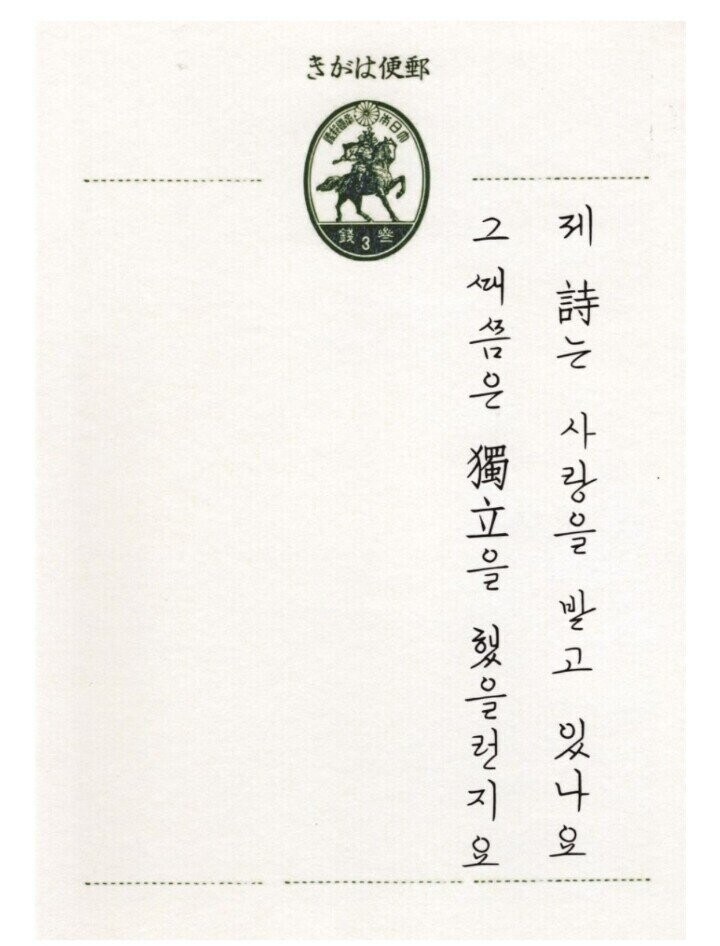 郵便はがき
大日本帝國郵便
叁3錢
제 詩는 사랑을 받고 있나요
그때쯤은 獨立을 했을런지요